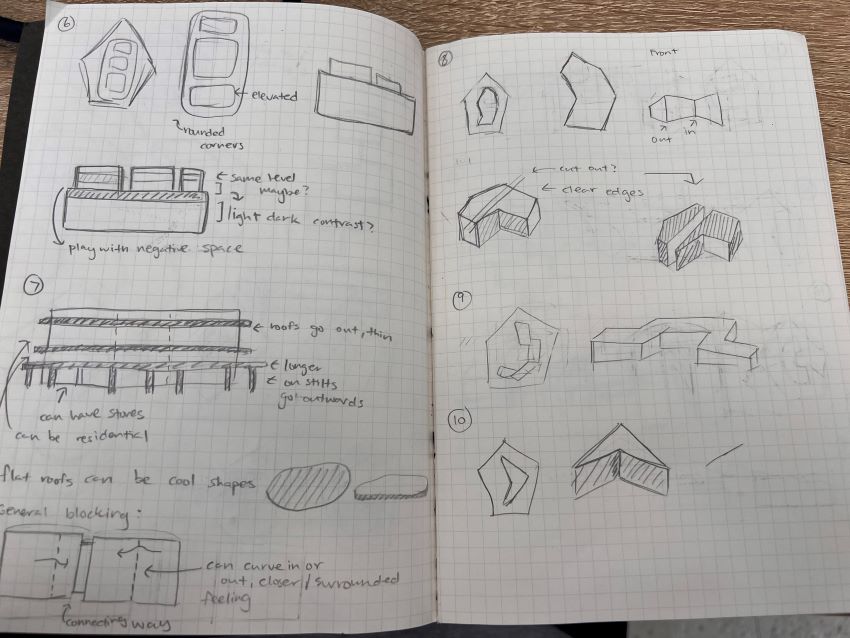 6
elevated
rounded
corners
same level
maybe?
light dark contrast?
play with negative space
7
roofs go out, thin
longer
on stilts
go outwards
can have stores
can be residential
flat roofs can be cool shapes
General blocking:
can curve in or
out, closer/surrounded
feeling
connecting way
8
Front
out
in
cut out?
clear edges
9
10